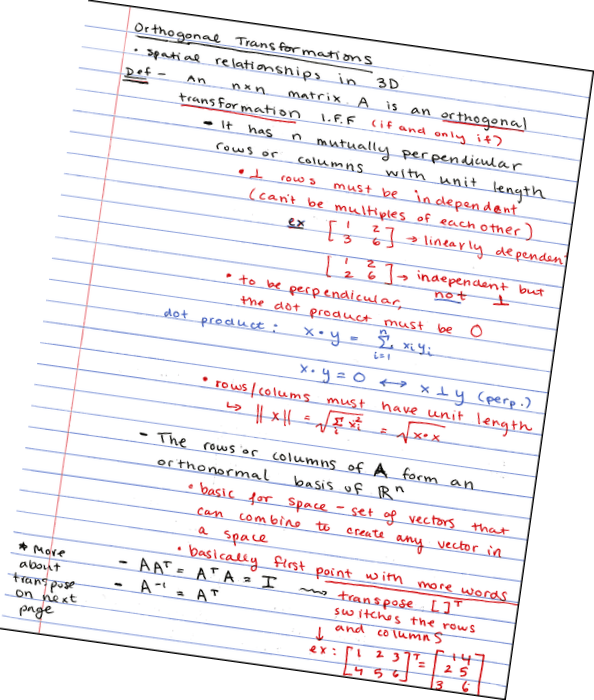 Orthogonal Transformations
• spatial relationships in 3D
Def - An n×n matrix A is an orthogonal
transformation I.F.F (if and only if)
- It has n mutually perpendicular
rows or columns with unit length
• ⊥ rows must be independent
(can't be multiples of each other)
ex [1 2; 3 6] → linearly dependen
[1 2; 2 6] → independent but
not ⊥
• to be perpendicular,
the dot product must be 0
dot product: x • y = Σ_{i=1}^{n} x_i y_i
x • y = 0 ↔ x ⊥ y (perp.)
• rows/colums must have unit length
↳ ||x|| = √(Σ_i^n x_i^2) = √(x•x)
- The rows or columns of A form an
orthonormal basis of ℝ^n
• basic for space - set of vectors that
can combine to create any vector in
a space
• basically first point with more words
- AA^T = A^T A = I ⇝ transpose [ ]^T
- A^{-1} = A^T
switches the rows
and columns
↓
ex: [1 2 3; 4 5 6]^T = [1 4; 2 5; 3 6]
* More
about
transpose
on next
page